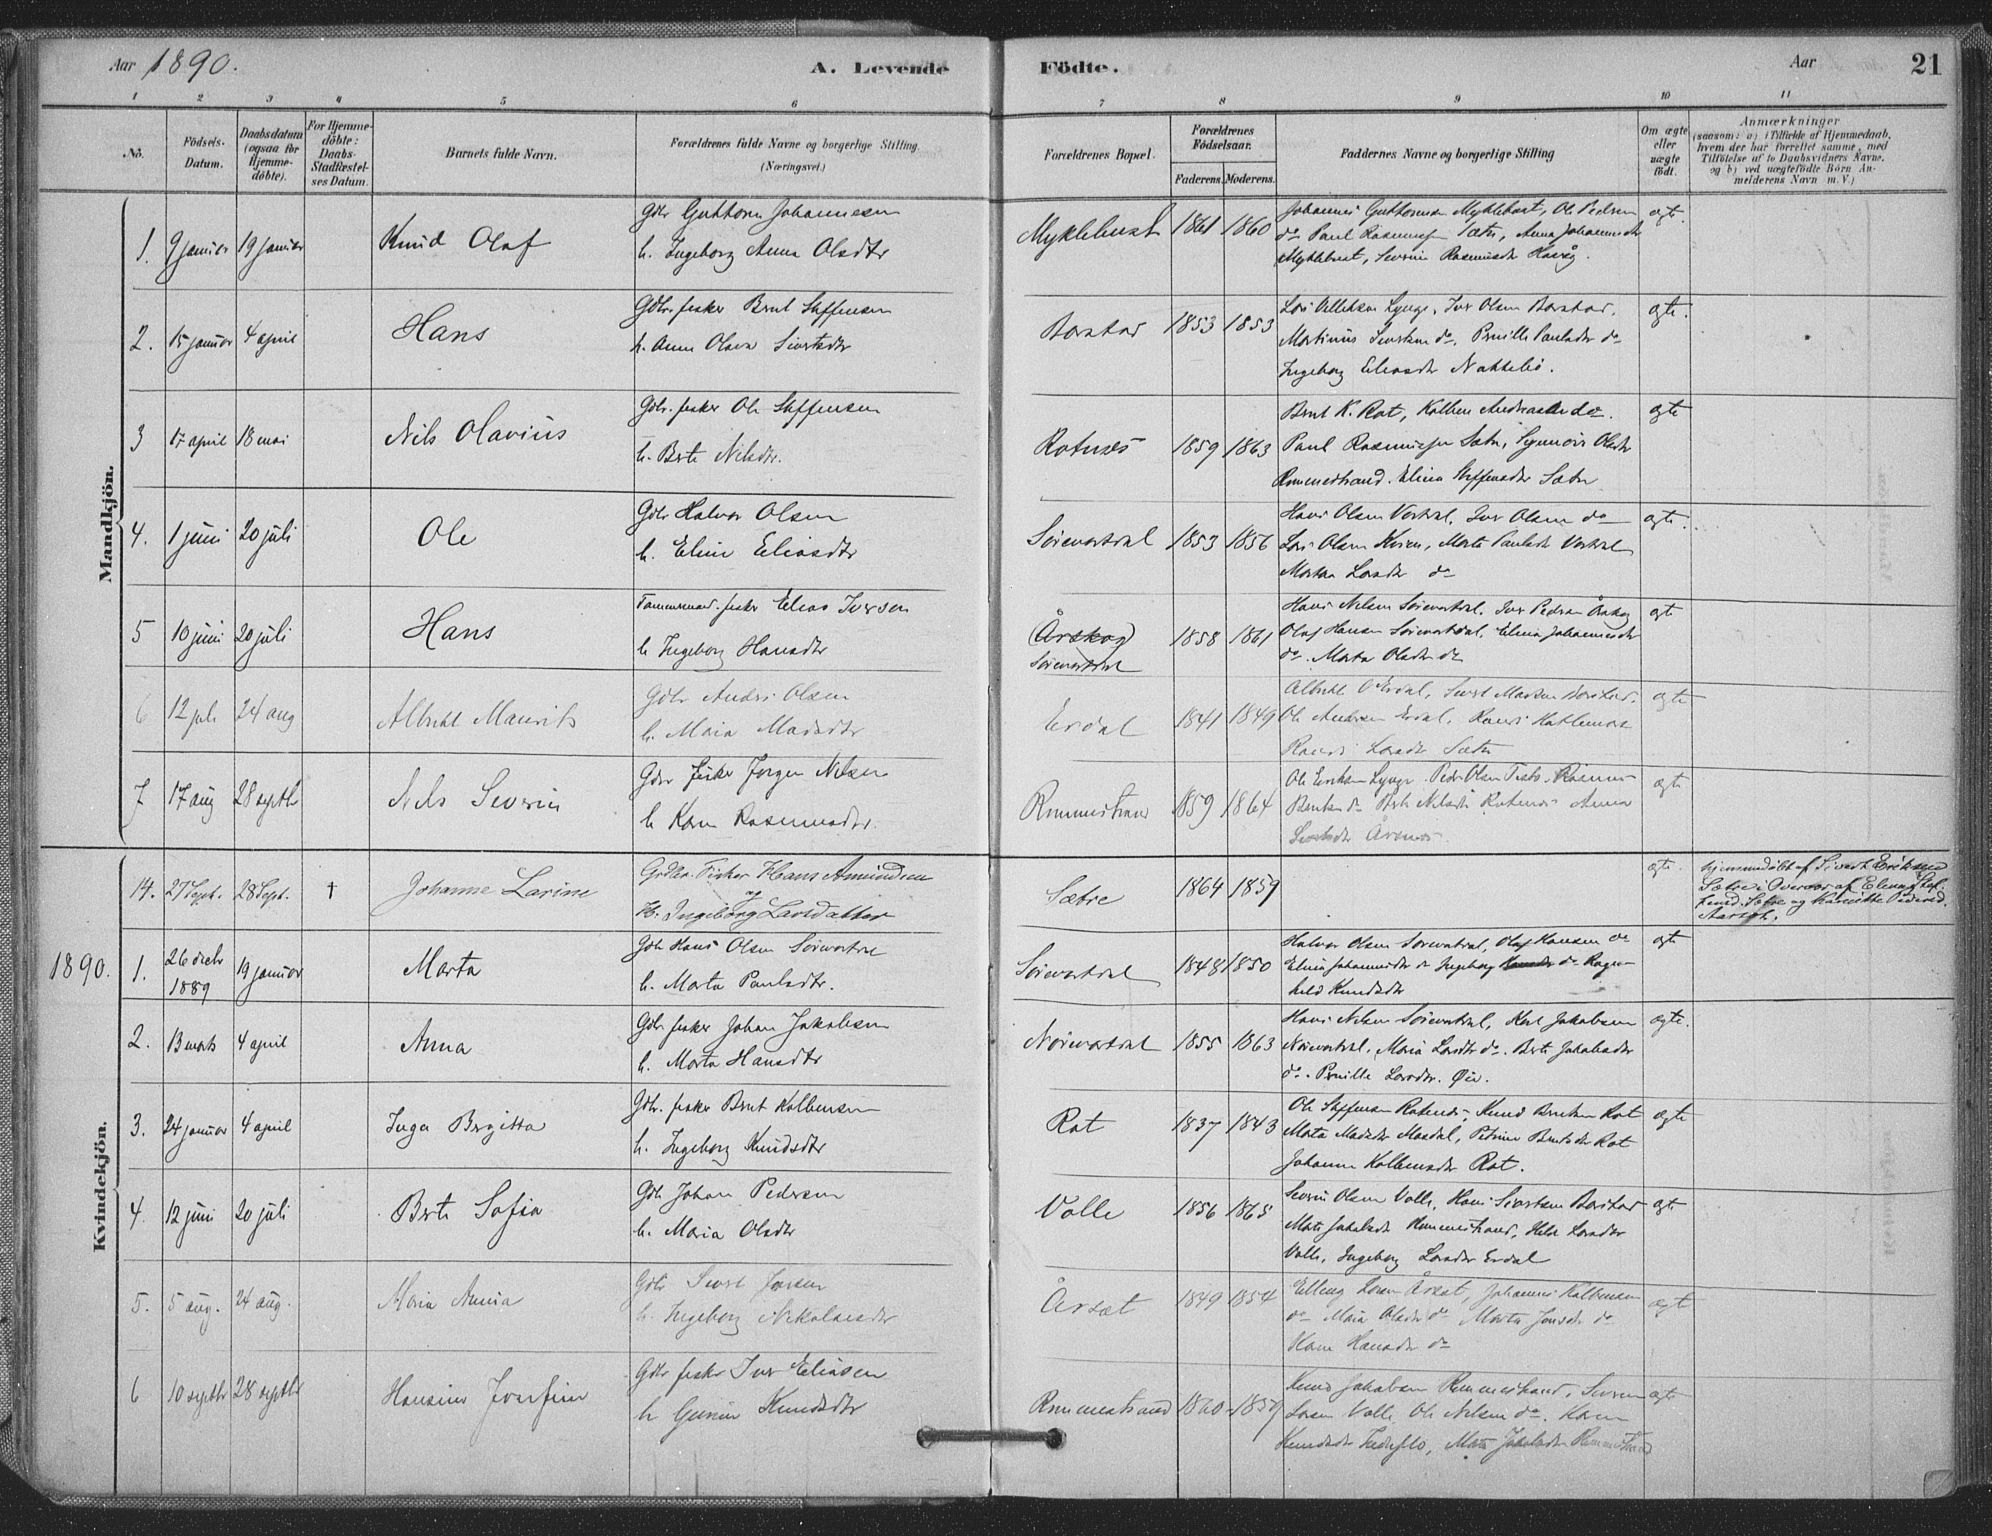 Aar 1890.
A. Levende Födte.
Aar
21
1 2 3 4 5 6 7 8 9 10 11
No.
Födsels-Datum.
Daabsdatum (ogsaa for Hjemme-döbte).
For Hjemme-döbte: Daabs-Stadfæstel-ses Datum.
Barnets fulde Navn.
Forældrenes fulde Navne og borgerlige Stilling. (Næringsvei.)
Forældrenes Bopæl.
Forældrenes Födselsaar.
Faderens. Moderens.
Faddernes Navne og borgerlige Stilling
Om ægte eller uægte födt.
Anmærkninger
(saasom: a) i Tilfælde af Hjemmedaab, hvem der har forrettet samme, med Tilföielse af to Daabsvidners Navne. og b) ved uægtefödte Börn An-melderens Navn m. V.)
Mandkjön.
1. 9 januar 19 januar Knud Olaf
Gdbr Guttorm Johannesen
h. Ingeborg Anna Olsdtr
Myklebust 1861 1860
Johannes Guttormsen Myklebust, Ole Pedersen
do Paul Rasmussen Sætre, Anna Johannesdtr
Myklebust, Severine Rasmusdtr
ægte.
2. 15 januar 4 april Hans
Gdbr. fisker Bernt Steffensen
h. Anne Olava Sivertsdtr
Barstad 1853 1853
Lars Ellefsen Lynge, Iver Olsen Barstad,
Martinus Sivertsen do, Pernille Paulsdtr do
Ingeborg Eliasdtr
ægte.
3 17 april 18 mai Nils Olavius
Gdbr. fisker Ole Steffensen
h. Berte Nilsdtr.
Rotnæs 1859 1863
Bernt K. Rot, Kolben do.
Paul Rasmussen Sætre, Synnøve Olsdtr
Rommestrand. Elina Steffensdtr Sætre
ægte
4. 1 juni 20 juli Ole
Gdbr Halvor Olsen
h. Eline Eliasdtr
Søievartdal 1853 1856
Hans Olsen Vartdal, Iver Olsen do
Lars Olsen, Marte Paulsdtr Vartdal
Larsdtr do
ægte.
5 10 juni 20 juli Hans
Tømmermand. fisker Elias Iversen
h Ingeborg Hansdtr
(Årskog)
Søievartdal
1858 1861
Hans Nilsen Søievartdal. Iver Pedersen Årskog
Olaf Hansen Søievartdal, Elina Johannesdtr
do. Marta Olsdtr do
ægte
6 12 juli 24 aug Albrikt Maurits
Gdbr Anders Olsen
h. Maria Madsdtr
Erdal 1841 1849
Albrikt O Erdal, Sivert Madsen Barstad.
Ole Andersen Erdal,
Larsdtr Sætre
ægte
7 17 aug 28 septbr Nils Severin
Gdbr fisker Jørgen Nilsen
h Karen Rasmusdtr.
Rommestrand 1859 1864
Ole Eriksen Lynge. Peder Olsen, Rasmus
Berntsen do Berte Nilsdtr Rotnæs Anna
Sivertsdtr
ægte
Kvindekjön.
14. 27 Sept. 28 Sept. † Johanne Larine
Grdbr. Fisker Hans Amundsen
og
H. Ingeborg Larsdatter
Sætre 1864 1859
ægte.
hjemmedøbt af Sivert Eriksen
Sætre i Overvær af Elen Stef.
Sætre og
Aarseth.
1890.
1. 26 decbr 1889 19 januar Marta
Gdbr Hans Olsen Søievartdal
h. Marta Paulsdtr.
Søievartdal 1848 1850
Halvor Olsen Søievartdal, Olaf Hansen do
Elina Johannesdtr do Ingeborg do Ragn-
hild Knudsdtr
ægte
2. 13 marts 4 april Anna
Gdbr fisker Johan Jakobsen
h. Marta Hansdtr
Nørevartdal 1855 1863
Hans Nilsen Søievartdal, Karl Jakobsen
Nørevartdal, Maria Larsdtr do. Berte Jakobsdtr
do. Pernille Larsdtr. Øie.
ægte.
3. 24 januar 4 april Inga Bergitta
Gdbr. fisker Bernt Kolbensen
h. Ingeborg Knudsdtr
Rot 1837 1843
Ole Steffensen Rotnæs, Knud Berntsen Rot
Marta Madsdtr Masdal, Petrine Berntsdtr Rot
Johanna Kolbensdtr Rot.
ægte
4. 12 juni 20 juli Berte Sofia
Gdbr Johan Pedersen
h. Maria Olsdtr
Valle 1856 1865
Severin Olsen Valle, Hans Sivertsen Barstad
Marte Jakobsdtr Rommestrand, Larsdtr
Valle, Ingeborg Larsdtr Erdal
ægte
5. 5 aug. 24 aug. Maria Anna
Gdbr Sivert
h. Ingeborg Nikolaisdtr
Årsæt 1849 1854
Elling Larsen Årsæt, Johannes Kolbensen
do Maria Olsdtr do Marta Jonsdtr do
Karen Hansdtr do
ægte
6 10 septbr 28 septbr Hansine Josefine
Gdbr fisker Iver Eliassen
h Gurine Knudsdtr
Rommestrand 1860 1859
Knud Jakobsen Rommestrand, Severin
Larsen Valle Ole Nilsen do. Karen
Knudsdtr, Marte Jakobsdtr Rommestrand
ægte